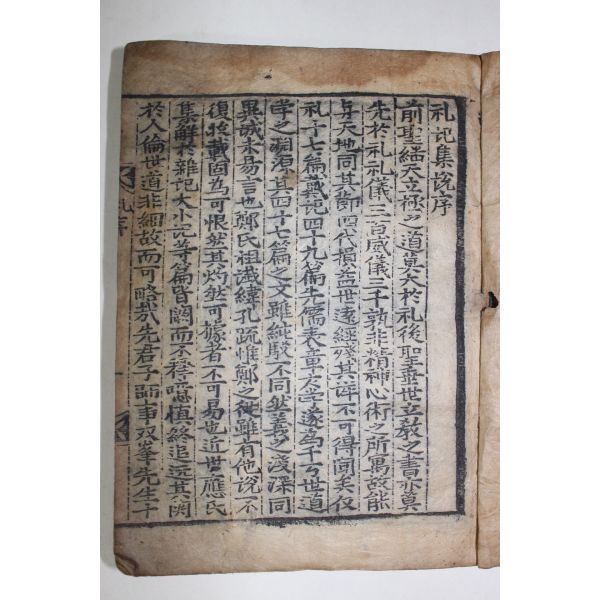 礼記集說序
前聖繼天立極之道莫大於礼後聖垂世立敎之書亦莫
先於礼礼儀三百威儀三千孰非精神心術之所寓故能
与天地同其節四代損益世遠經殘其詳不可得聞矣仅
礼十七篇戴記四十九篇先儒表章大学遂为千万世道
学之淵源其四十七篇之文雖純駁不同然義之淺深同
異誠未易言也鄭氏祖讖緯孔疏惟鄭之從雖有他說不
復收載固为可恨然其灼然可據者不可易也近世應氏
集解於雜記大小記等篇皆闕而不釋噫慎終追远其関
於人倫世道非細故而可略哉先君子師事双峯先生十
礼序